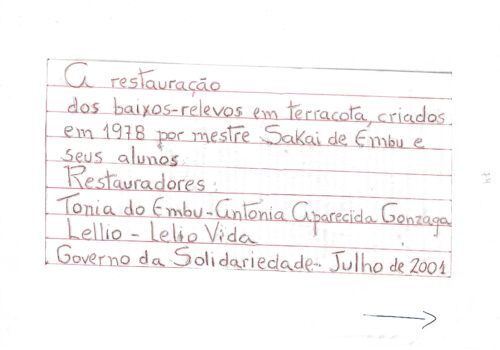 A restauração
dos baixos-relevos em terracota, criados
em 1978 por mestre Sakai de Embu e
seus alunos.
Restauradores:
Tonia do Embu-Antonia Aparecida Gonzaga
Lellio - Lelio Vida
Governo da Solidariedade- Julho de 2001